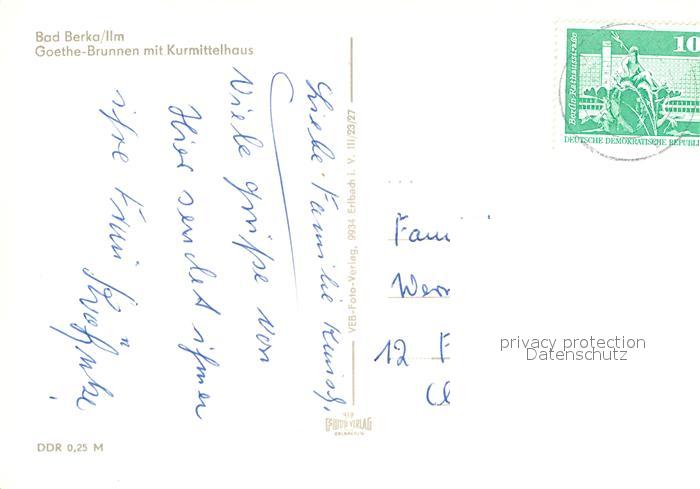 Bad Berka/Ilm
Goethe-Brunnen mit Kurmittelhaus
Liebe Familie
Viele grüße von
Hier sendet ihnen
ihre Frau
VEB-Foto-Verlag, 9934 Erlbach i. V. III/23/27
DDR 0,25 M
FOTO VERLAG
ERLBACH/V.
Berlin-Rathausstraße
10
DEUTSCHE DEMOKRATISCHE REPUBLI
Fami
Wern
12 F
privacy protection
Datenschutz